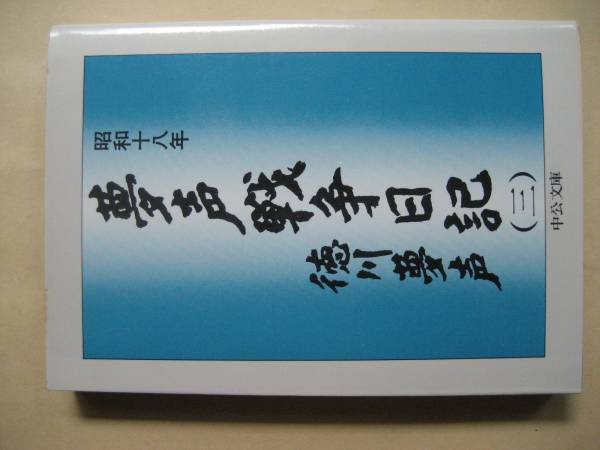 昭和十八年
夢声戦争日記
(三)
徳川夢声
中公文庫